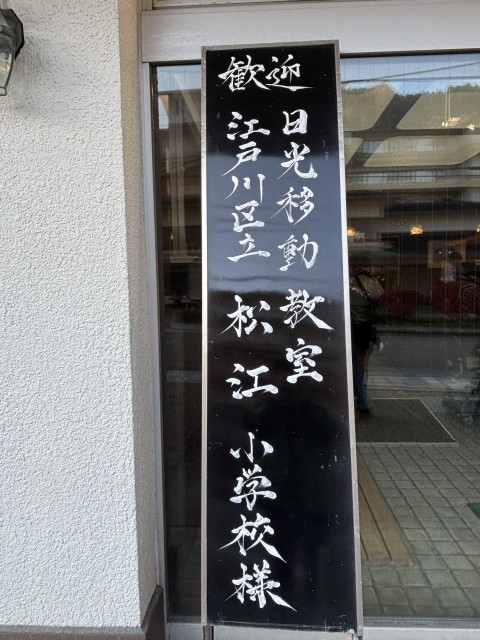 歓迎
日光移動教室
江戸川区立松江小学校様